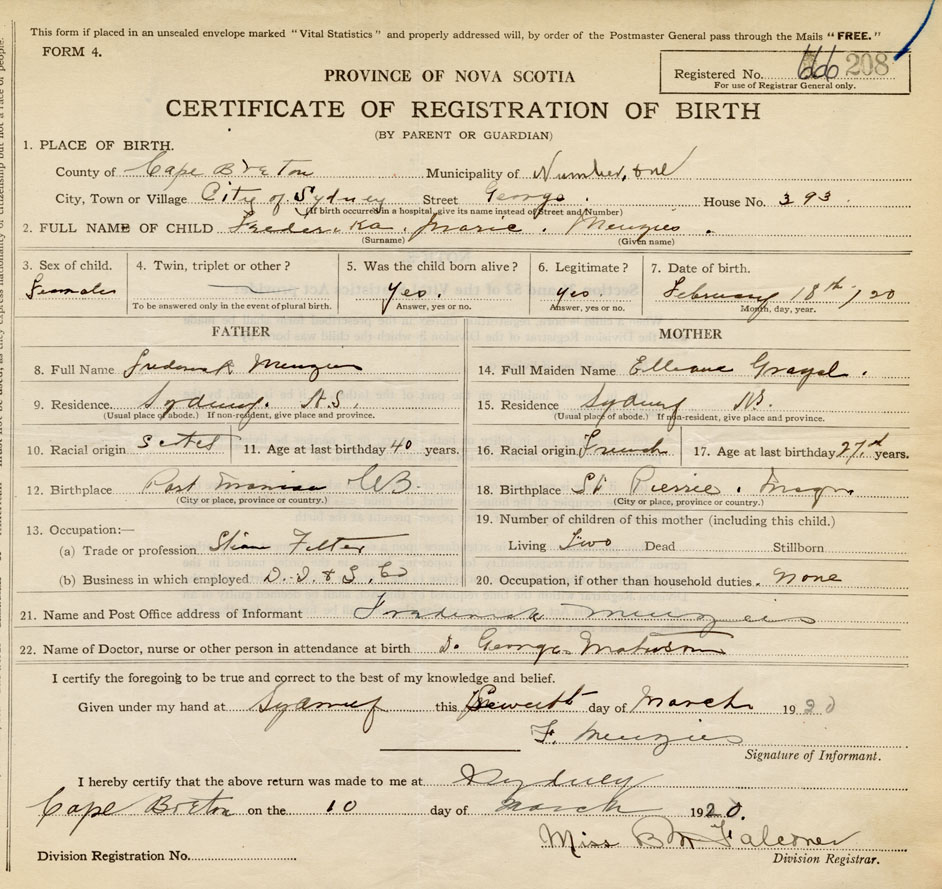 This form if placed in an unsealed envelope marked "Vital Statistics" and properly addressed will, by order of the Postmaster General pass through the Mails "FREE."
FORM 4.
Registered No. 208
For use of Registrar General only.
PROVINCE OF NOVA SCOTIA
CERTIFICATE OF REGISTRATION OF BIRTH
(BY PARENT OR GUARDIAN)
1. PLACE OF BIRTH.
County of Cape Breton Municipality of Number, one
City, Town or Village City of Sydney Street George. House No. 393.
(If birth occurred in a hospital, give its name instead of Street and Number)
2. FULL NAME OF CHILD Frederika. Marie. Menzies.
(Surname) (Given name)
3. Sex of child. 4. Twin, triplet or other? 5. Was the child born alive? 6. Legitimate? 7. Date of birth.
Female Yes. Yes February 18th /20
To be answered only in the event of plural birth. Answer, yes or no. Answer, yes or no. Month, day, year.
FATHER
8. Full Name Frederick Menzies
9. Residence. Sydney. N.S.
(Usual place of abode.) If non-resident, give place and province.
10. Racial origin 11. Age at last birthday 40 years.
12. Birthplace Port C.B.
(City or place, province or country.)
13. Occupation:—
(a) Trade or profession
(b) Business in which employed D. I. & S. Co
MOTHER
14. Full Maiden Name
15. Residence Sydney NS.
(Usual place of abode.) If non-resident, give place and province.
16. Racial origin French 17. Age at last birthday 27 years.
18. Birthplace St Pierrie.
(City or place, province or country.)
19. Number of children of this mother (including this child.)
Living Two Dead Stillborn
20. Occupation, if other than household duties. None
21. Name and Post Office address of Informant Frederick Menzies
22. Name of Doctor, nurse or other person in attendance at birth George
I certify the foregoing to be true and correct to the best of my knowledge and belief.
Given under my hand at Sydney this day of March 1920
F. Menzies
Signature of Informant.
I hereby certify that the above return was made to me at Sydney
Cape Breton on the 10 day of March 1920.
Miss B M Falconer
Division Registration No. Division Registrar.